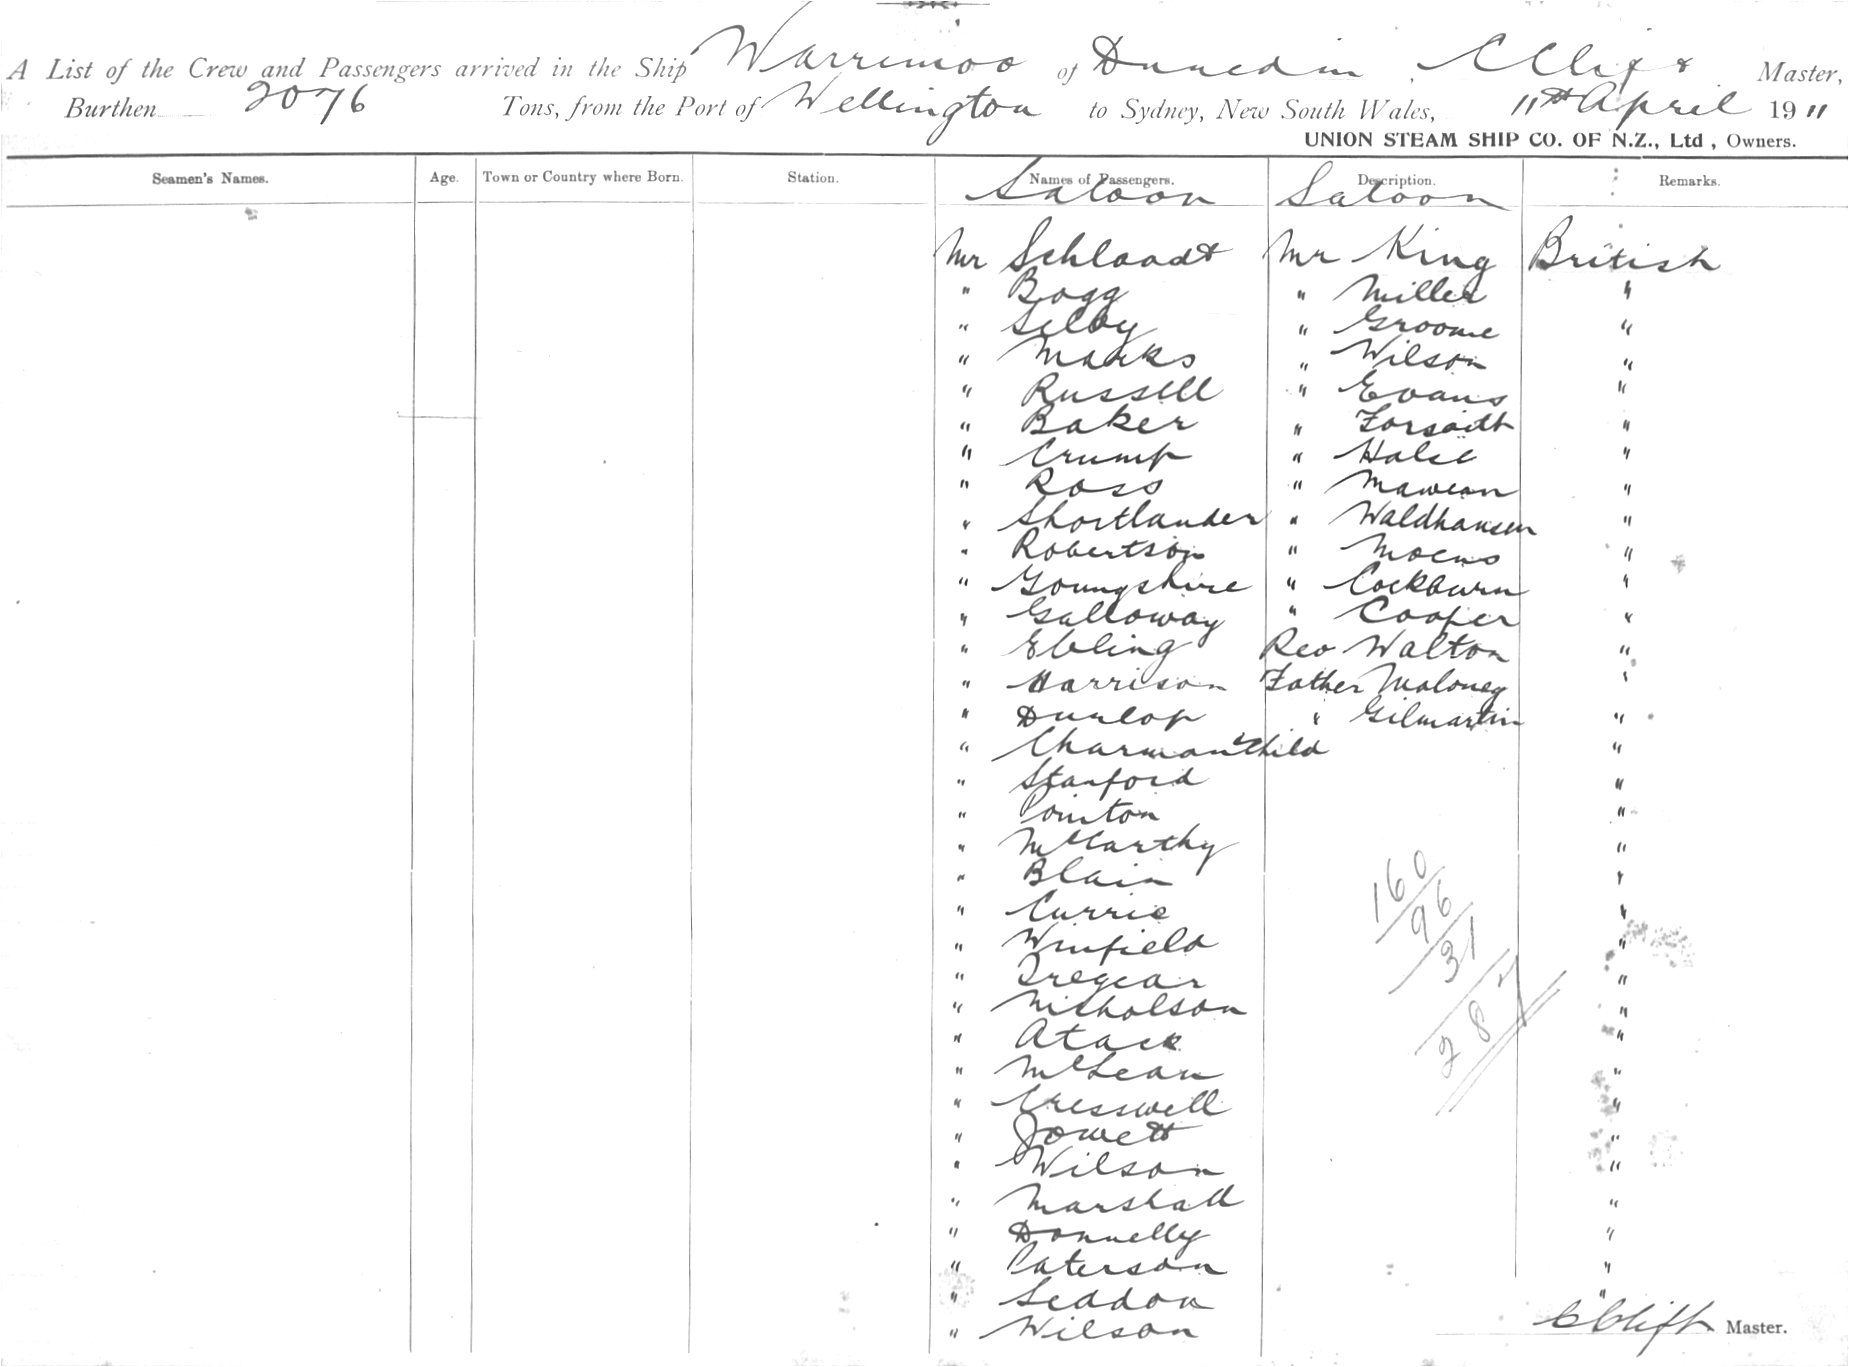 A List of the Crew and Passengers arrived in the Ship Warrimoo of Dunedin, C Clift Master,
Burthen 2076 Tons, from the Port of Wellington to Sydney, New South Wales, 11th April 1911
UNION STEAM SHIP CO. OF N.Z., Ltd, Owners.
Seamen's Names. Age. Town or Country where Born. Station. Names of Passengers. Description. Remarks.
Saloon Saloon
Mr Schlaadt Mr King British
" Bogg " Miller "
" Selby " Groome "
" Marks " Wilson "
" Russell " Evans "
" Baker " Forsaith "
" Crump " Halse "
" Ross " "
" Shortlander " Waldhausen "
" Robertson " Moens "
" Youngshire " Cockburn "
" Galloway " Cooper "
" Ebling Rev Walton "
" Harrison Father Maloney "
" Dunlop " Gilmartin "
" Charman & Child "
" Stanford "
" Pointon "
" McCarthy "
" Blain "
" Currie "
" Winfield "
" Tregear "
" Nicholson "
" Atack "
" McLean "
" Cresswell "
" Jowett "
" Wilson "
" Marshall "
" Donnelly "
" Paterson "
" Seddon "
" Wilson
160
96
31
287
C Clift Master.